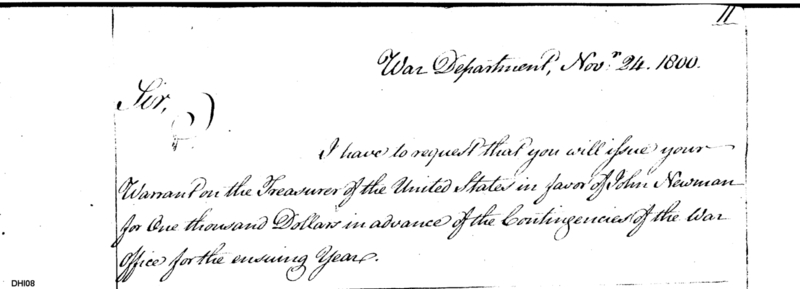 11
War Department, Nov.r 24. 1800.
Sir,
I have to request that you will issue your
Warrant on the Treasurer of the United States in favor of John Newman
for One thousand Dollars in advance of the Contingencies of the War
Office for the ensuing Year.
DHI08